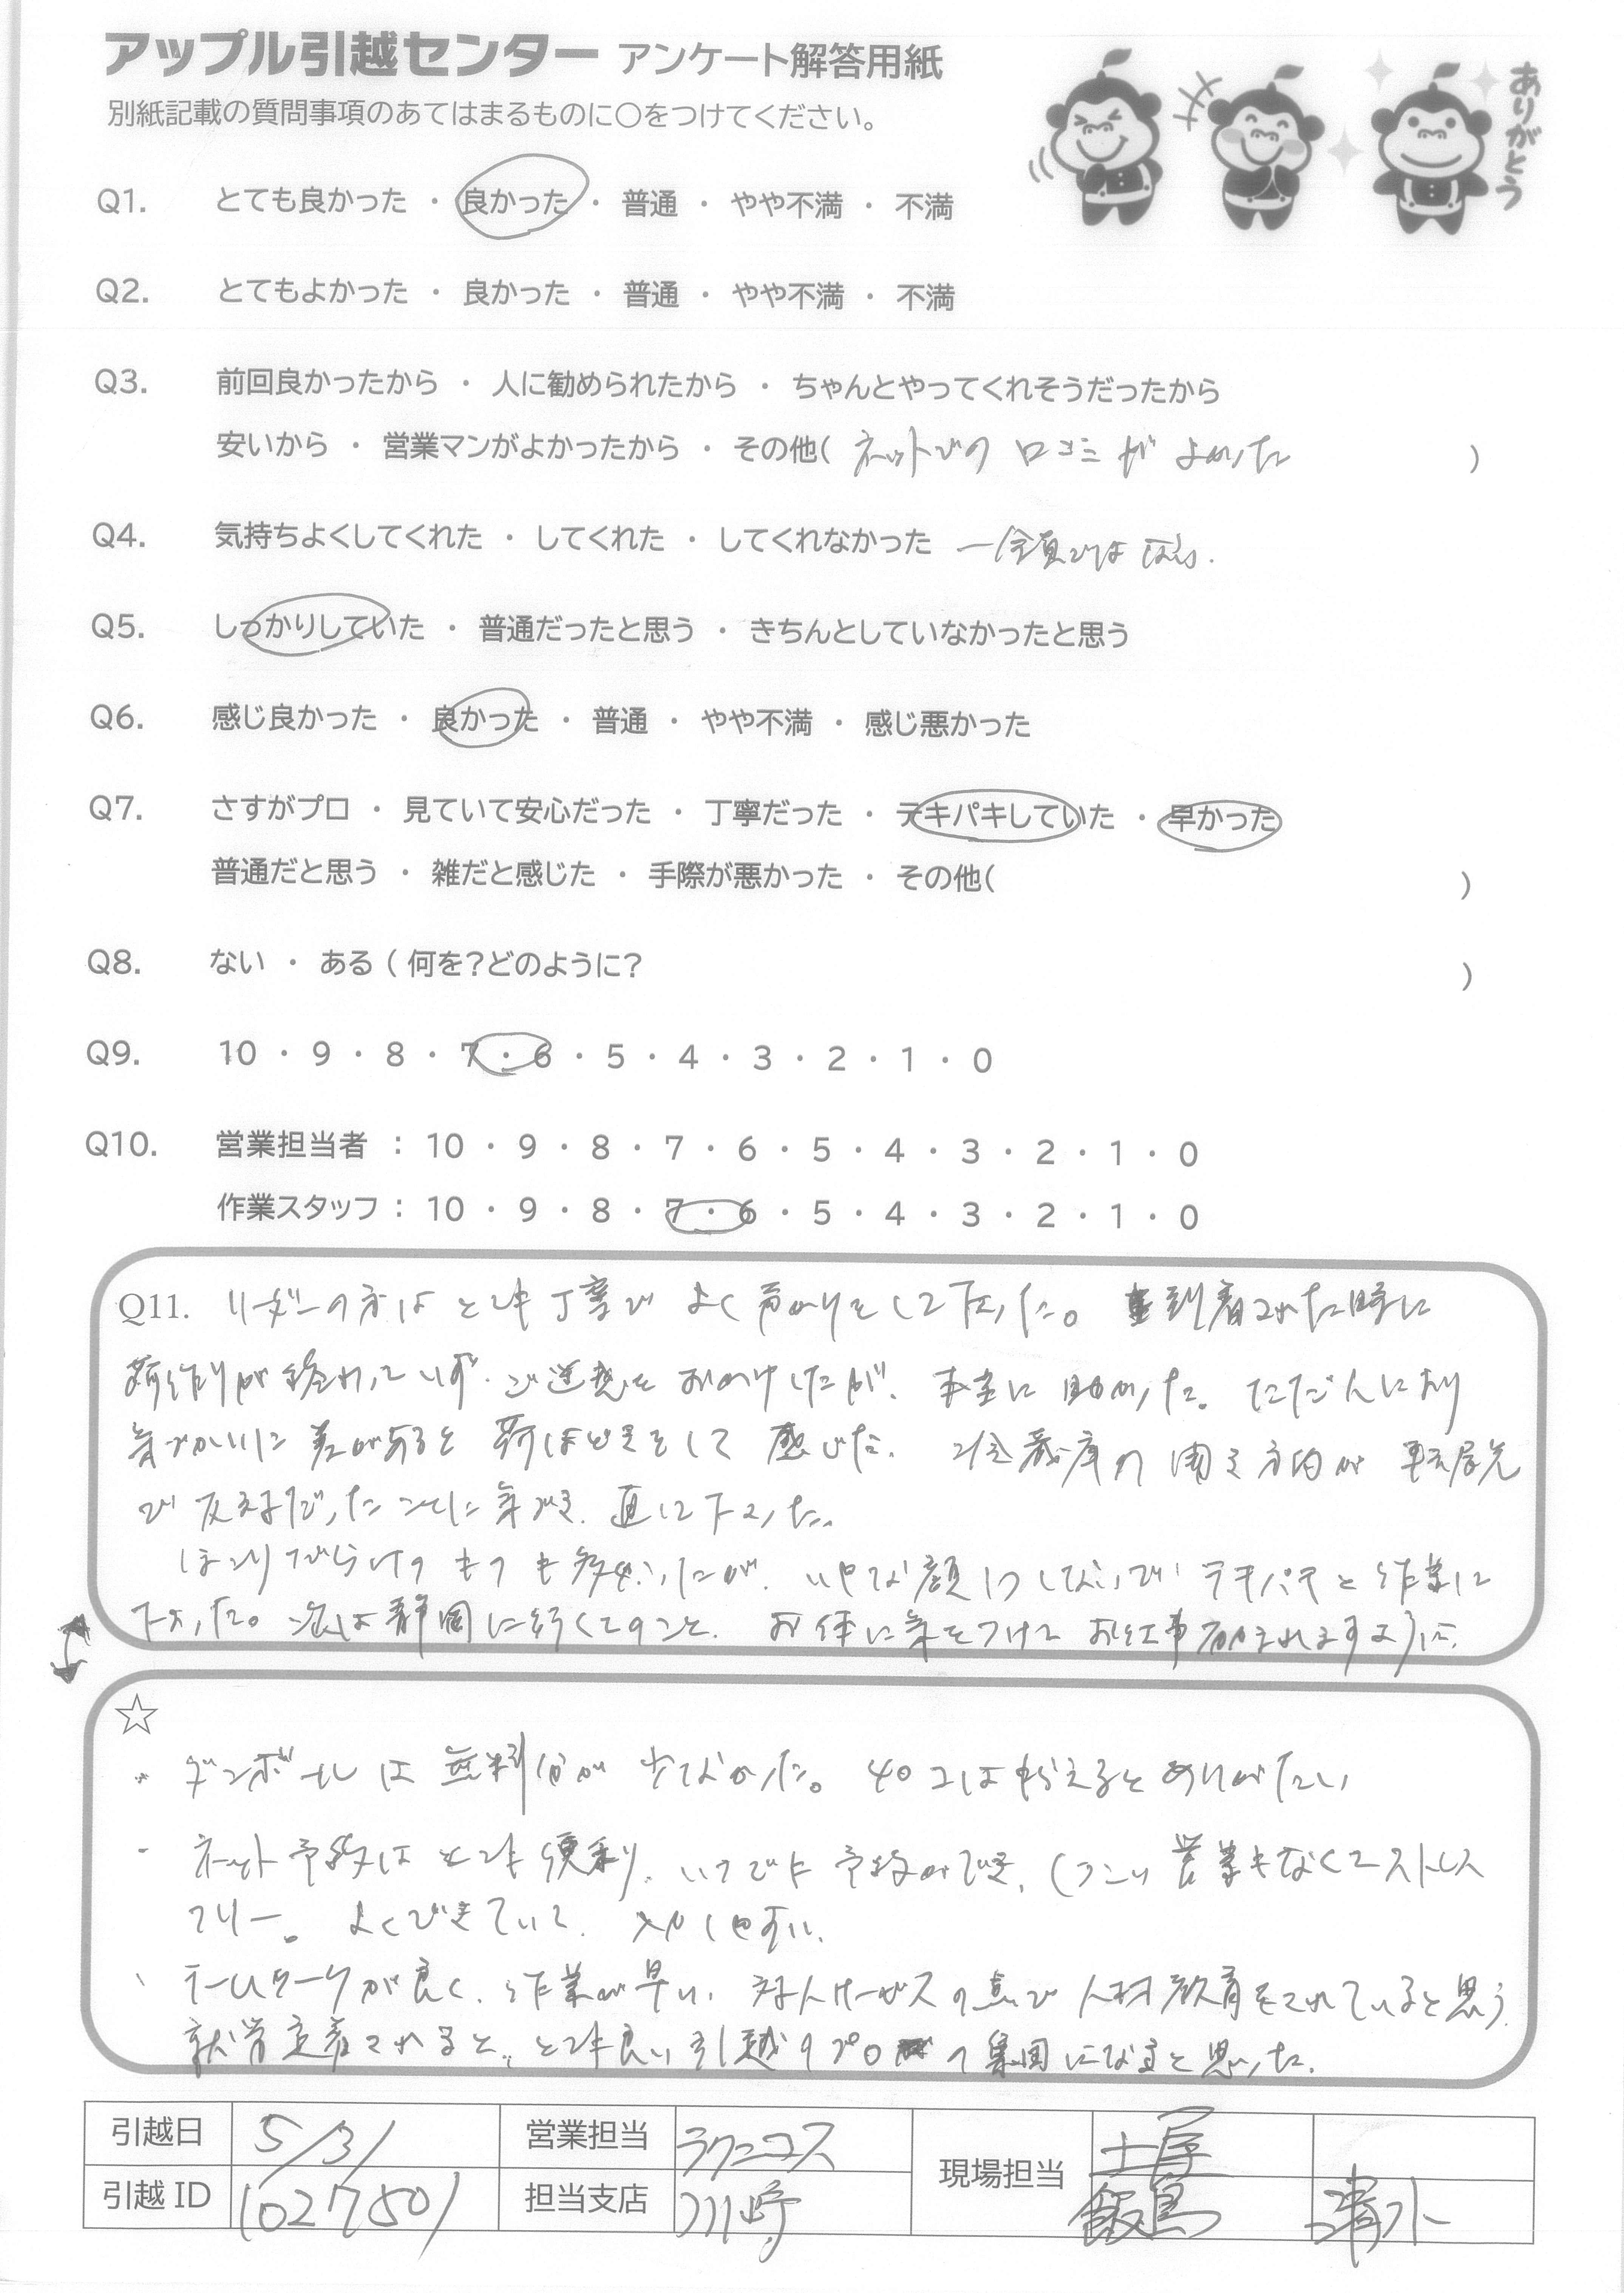 アップル引越センター アンケート解答用紙
ありがとう
別紙記載の質問事項のあてはまるものに○をつけてください。
Q1. とても良かった ・ 良かった ・ 普通 ・ やや不満 ・ 不満
Q2. とてもよかった ・ 良かった ・ 普通 ・ やや不満 ・ 不満
Q3. 前回良かったから ・ 人に勧められたから ・ ちゃんとやってくれそうだったから
安いから ・ 営業マンがよかったから ・ その他( ネットでの 口コミ が よかった )
Q4. 気持ちよくしてくれた ・ してくれた ・ してくれなかった 一全員ではない.
Q5. しっかりしていた ・ 普通だったと思う ・ きちんとしていなかったと思う
Q6. 感じ良かった ・ 良かった ・ 普通 ・ やや不満 ・ 感じ悪かった
Q7. さすがプロ ・ 見ていて安心だった ・ 丁寧だった ・ テキパキしていた ・ 早かった
普通だと思う ・ 雑だと感じた ・ 手際が悪かった ・ その他( )
Q8. ない ・ ある ( 何を?どのように? )
Q9. 10 ・ 9 ・ 8 ・ 7 ・ 6 ・ 5 ・ 4 ・ 3 ・ 2 ・ 1 ・ 0
Q10. 営業担当者 : 10 ・ 9 ・ 8 ・ 7 ・ 6 ・ 5 ・ 4 ・ 3 ・ 2 ・ 1 ・ 0
作業スタッフ : 10 ・ 9 ・ 8 ・ 7 ・ 6 ・ 5 ・ 4 ・ 3 ・ 2 ・ 1 ・ 0
Q11. リーダーの方は とても 丁寧で よく 声かけをして下さった。 到着された時に
荷作りが終わっていず、ご迷惑を おかけしたが、 本当に 助かった。 ただ人により
気づかいに 差があると 荷ほどきをして 感じた。 冷蔵庫の 開く方向が 転居先
で 反対だったことに 気づき、直して下さった。
ほこりだらけの ものも多かったが、 いやな顔ひつしないで テキパキと 作業して
下さった。次は静岡に行くとのこと、 お体に気をつけて お仕事励まれますように。
☆
・ ダンボールは 無料分が 少なかった。 40コは もらえると ありがたい
・ ネット予約は とても 便利、 いつでも 予約ができ、しつこい 営業もなくてストレス
フリー。 よくできていて、 入力しやすい、
・ チームワークが良く、作業が早い、 対人サービスの点で 人材教育をされていると思う。
定着されると、とても良い 引越のプロ の 集団になると思った。
引越日 5/31 営業担当 ラクニコス 現場担当 土屋
引越 ID 1027501 担当支店 川崎 飯島 清水